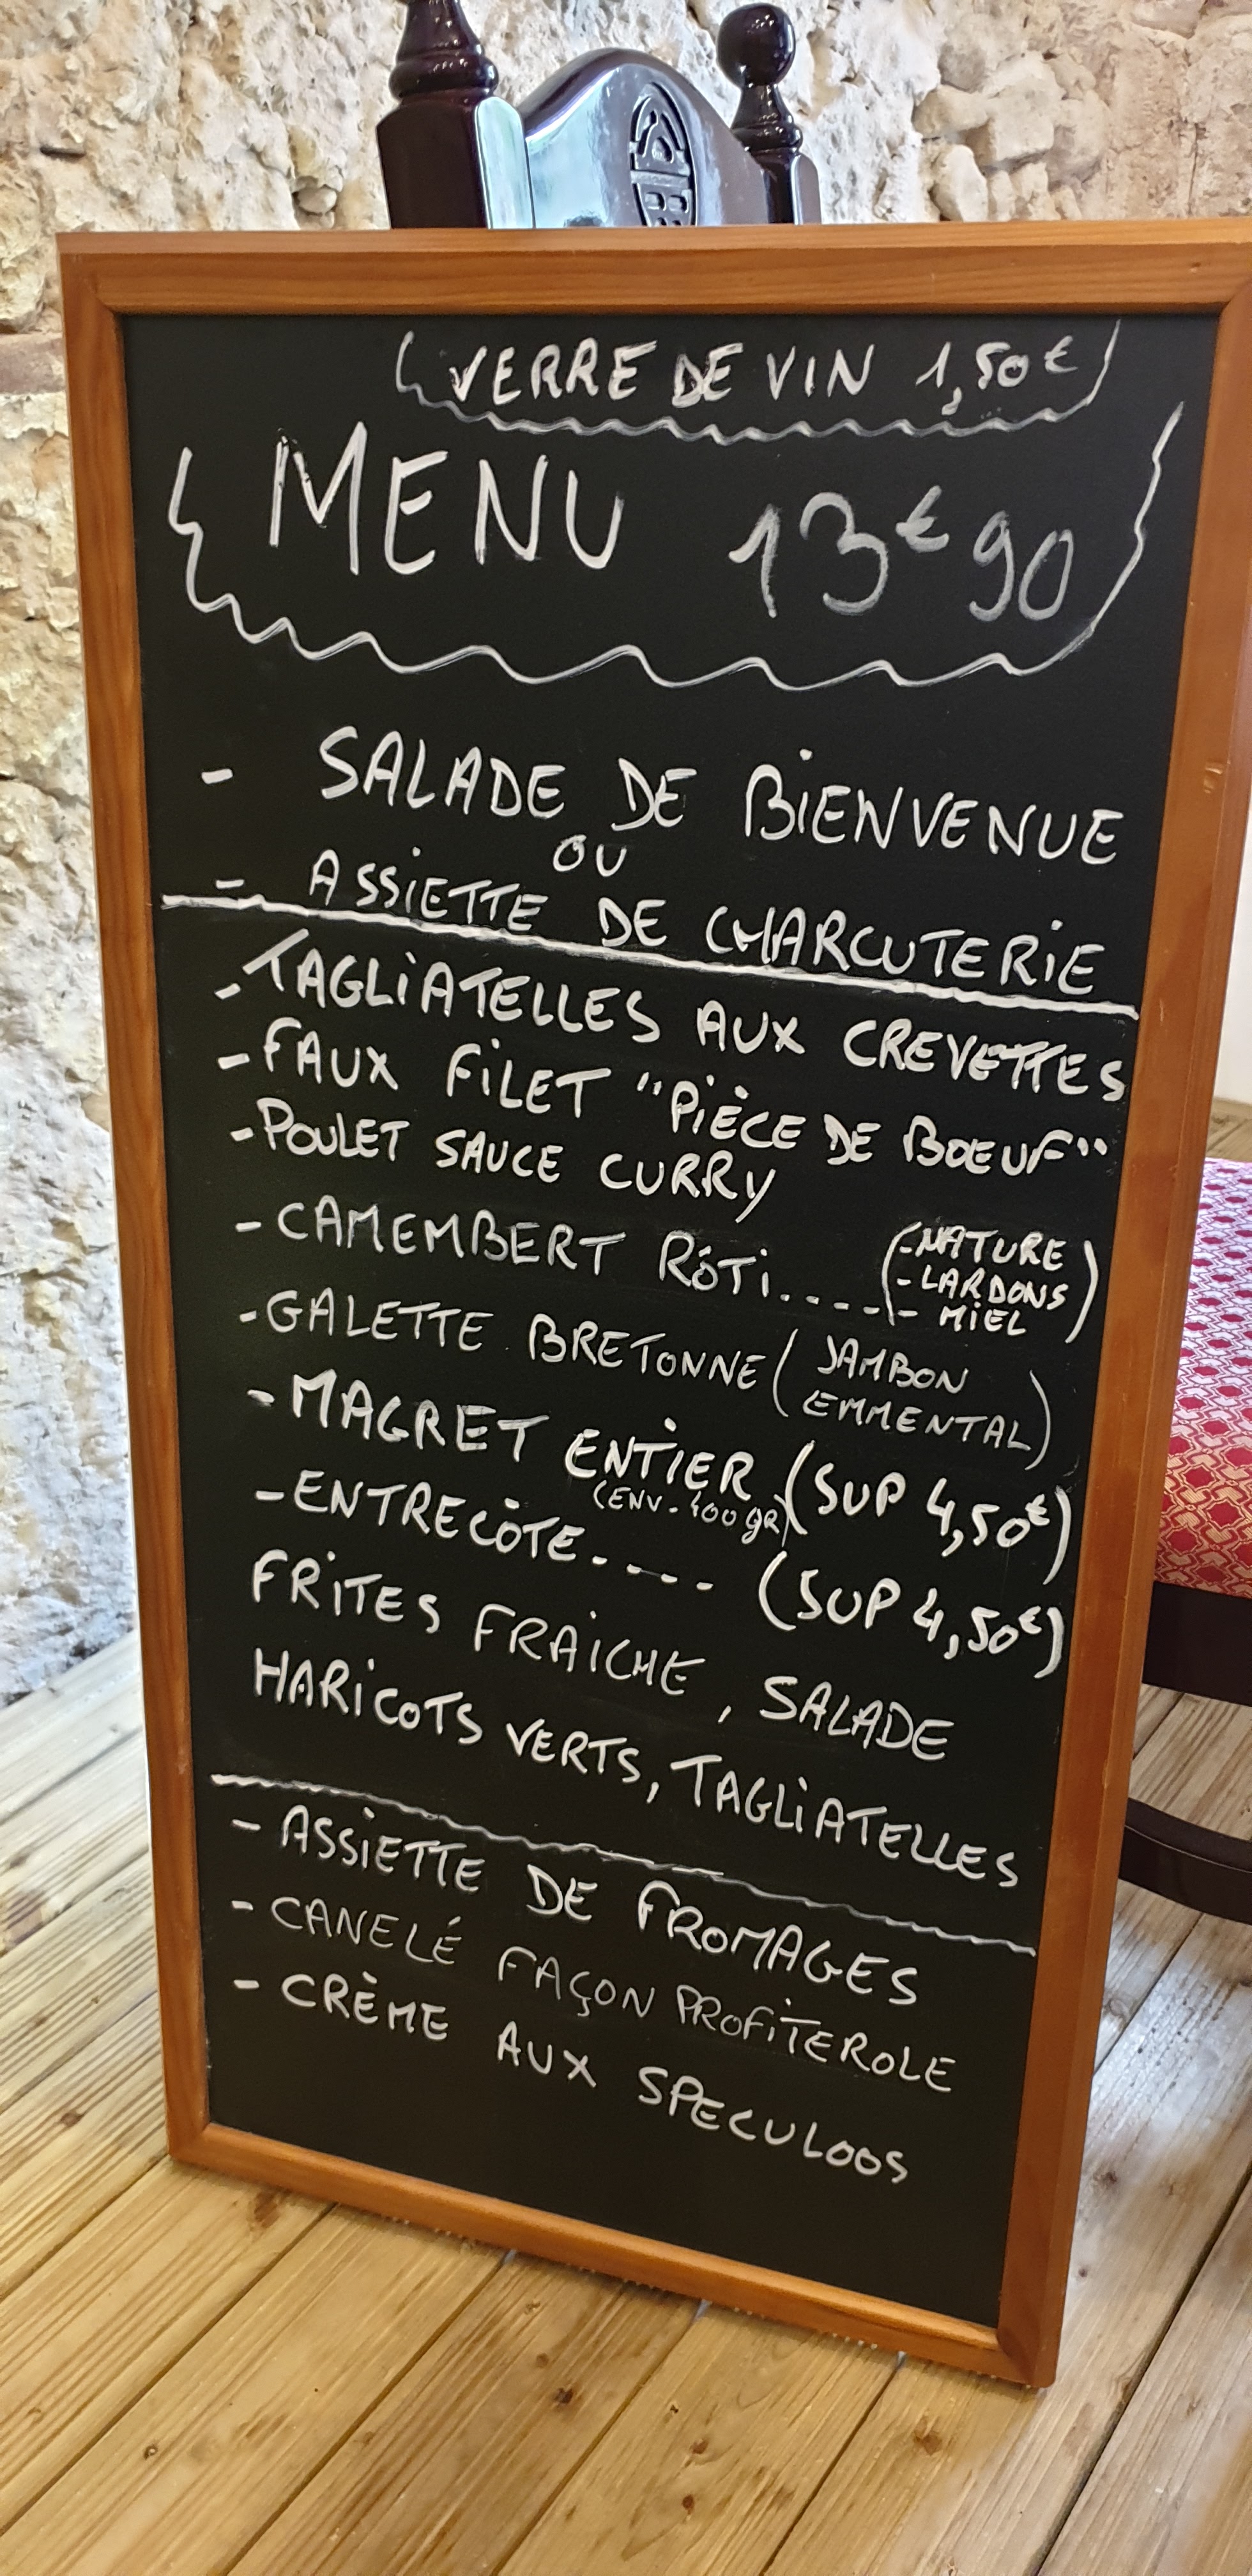 VERRE DE VIN 1,50€
MENU 13€90
- SALADE DE BIENVENUE
OU
- ASSIETTE DE CHARCUTERIE
- TAGLIATELLES AUX CREVETTES
- FAUX FILET "PIÈCE DE BOEUF"
- POULET SAUCE CURRY
- CAMEMBERT RÔTI.... (- NATURE
- LARDONS
- MIEL)
- GALETTE BRETONNE (JAMBON
EMMENTAL)
- MAGRET ENTIER (SUP 4,50€)
(ENV. 400GR)
- ENTRECÔTE.---- (SUP 4,50€)
FRITES FRAICHE, SALADE
HARICOTS VERTS, TAGLIATELLES
- ASSIETTE DE FROMAGES
- CANELÉ FAÇON PROFITEROLE
- CRÈME AUX SPECULOOS